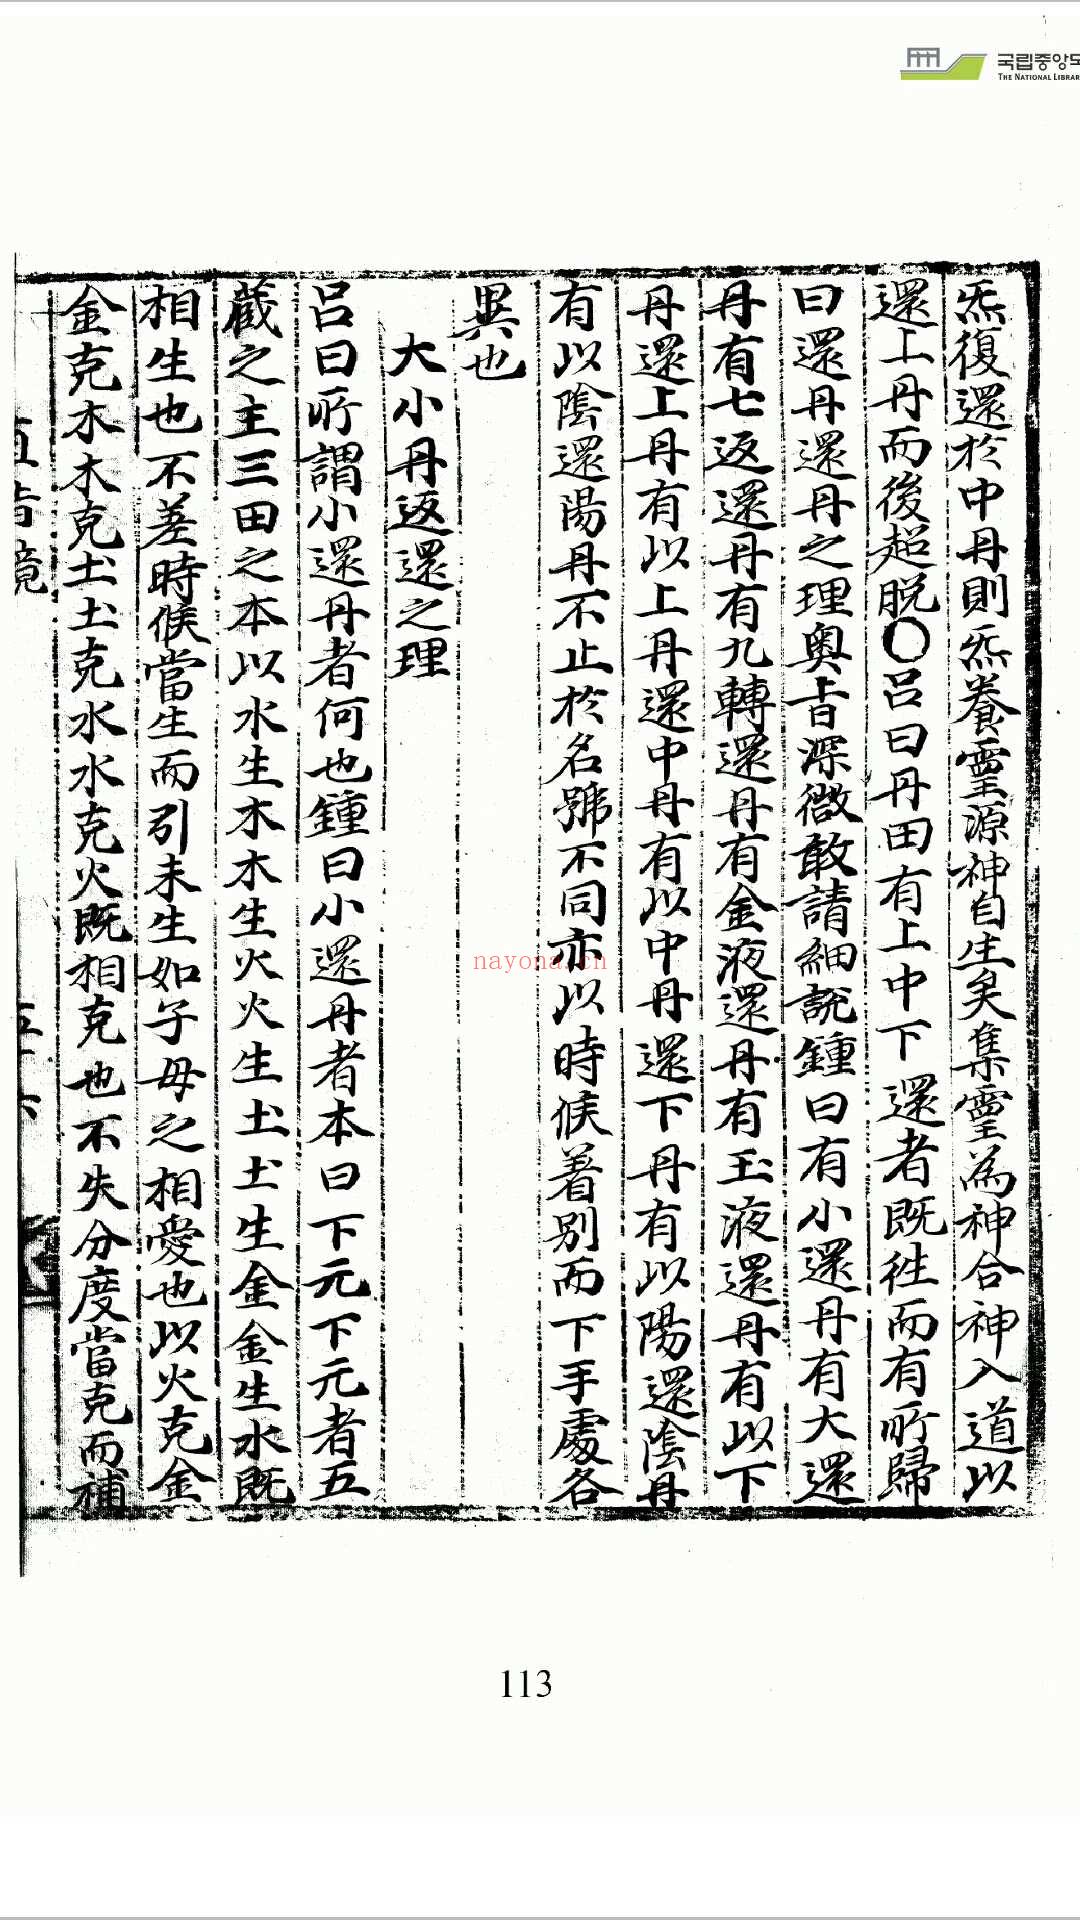 국립중앙도
THE NATIONAL LIBRAR
炁復還於中丹則炁養靈源神自生矣集靈為神合神入道以
還上丹而後超脱〇呂曰丹田有上中下還者既往而有所歸
曰還丹還丹之理奥旨深微敢請細説鍾曰有小還丹有大還
丹有七返還丹有九轉還丹有金液還丹有玉液還丹有以下
丹還上丹有以上丹還中丹有以中丹還下丹有以陽還陰丹
有以陰還陽丹不止於名號不同亦以時候着别而下手處各
異也
大小丹返還之理
呂曰所謂小還丹者何也鍾曰小還丹者本曰下元下元者五
藏之主三田之本以水生木木生火火生土土生金金生水既
相生也不差時候當生而引未生如子母之相愛也以火克金
金克木木克土土克水水克火既相克也不失分度當克而補
nayona.cn
113